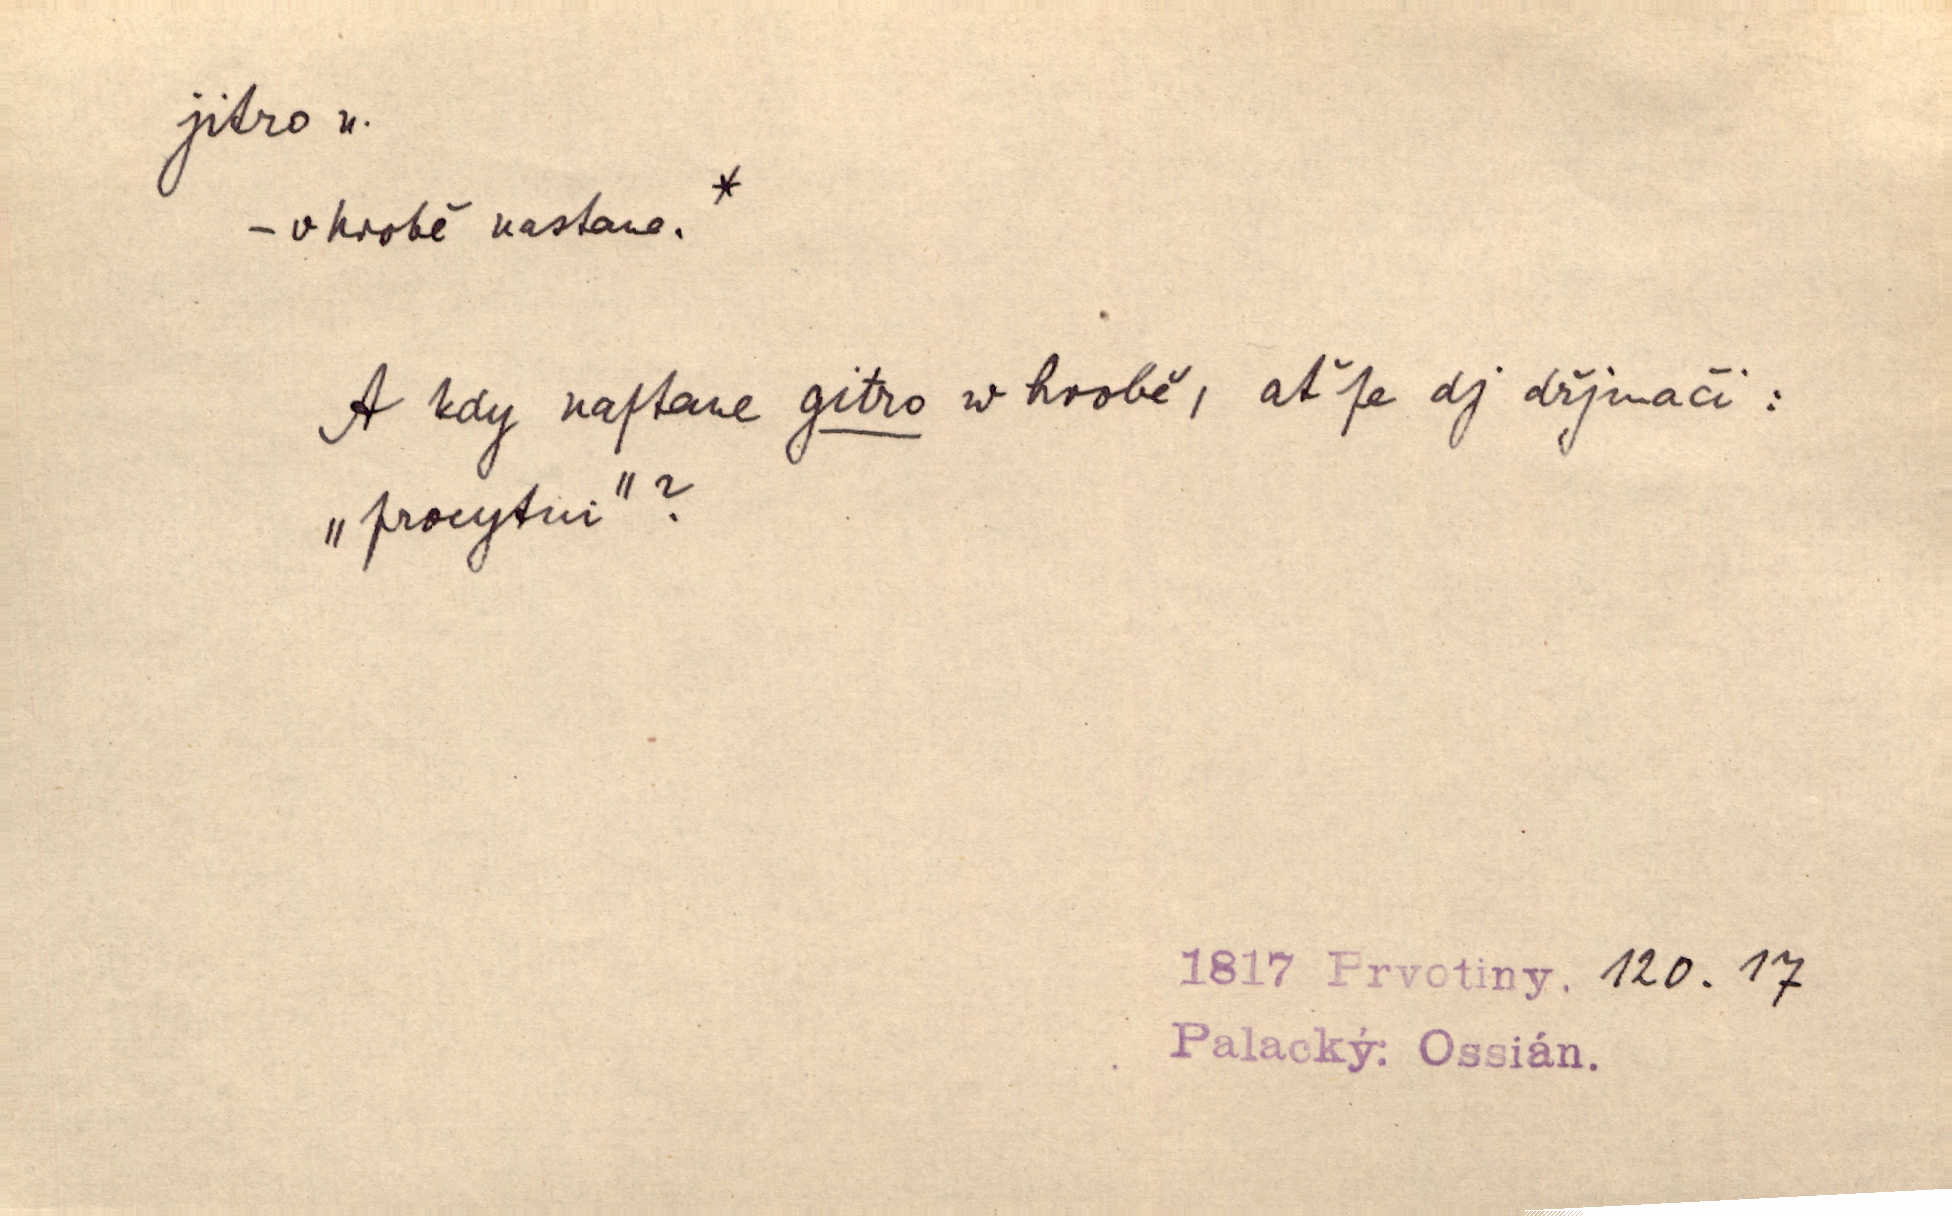 jitro n.
– v hrobě nastane.*
A kdy naſtane gitro w hrobě, ať ſe dj dřjmači :
„procytni" ?
1817 Prvotiny. 120. 17
Palacký: Ossián.